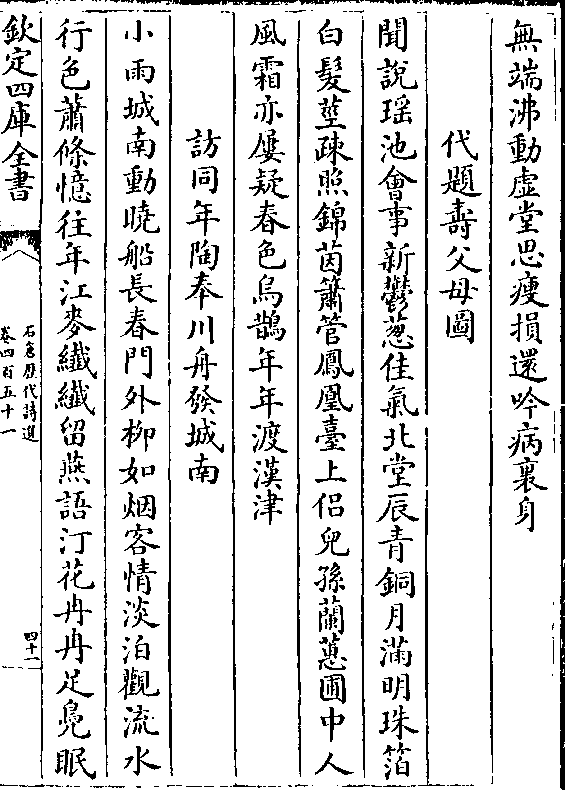 無端沸動虛堂思瘦損還吟病裏身
代題壽父母圖
聞說瑶池㑹事新鬱葱佳氣北堂辰青銅月滿明珠箔
白髮莖疎照錦茵簫管鳳凰臺上侣兒孫蘭蕙圃中人
風霜亦屢疑春色烏鵲年年渡漢津
訪同年陶奉川舟發城南
小雨城南動曉船長春門外柳如烟客情淡泊觀流水
行色蕭條憶往年江麥纖纖留燕語汀花冉冉足鳬眠
欽定四庫全書
石倉歷代詩選
卷四百五十一
四十一